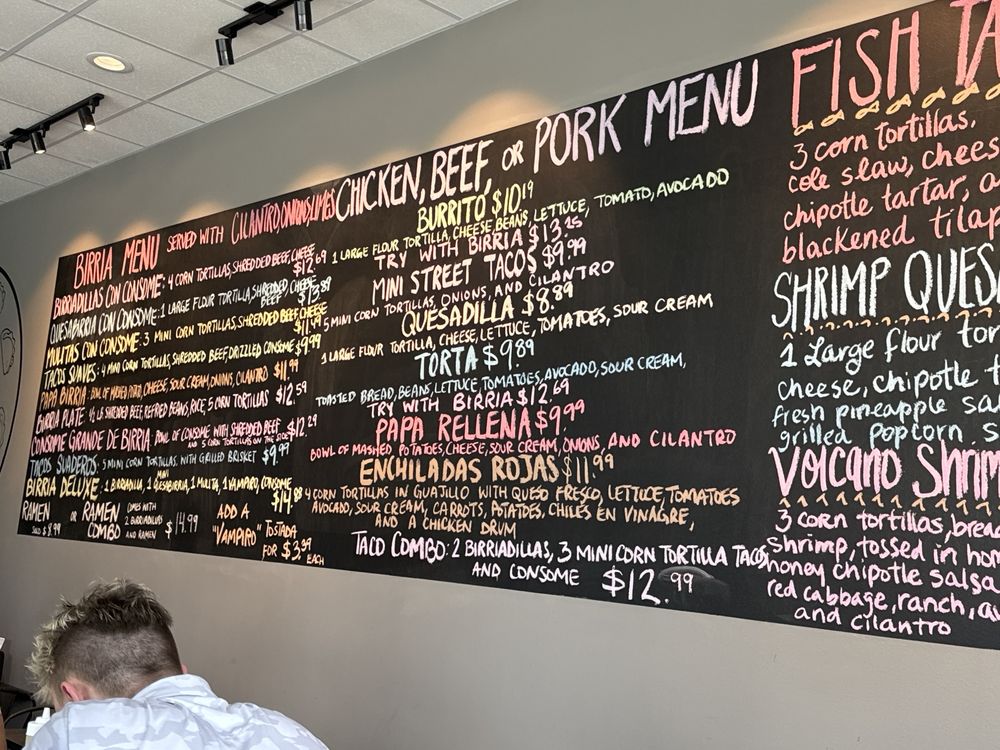 BIRRIA MENU SERVED WITH CILANTRO, ONIONS, LIMES
BIRRIADILLAS CON CONSOME: 4 CORN TORTILLAS, SHREDDED BEEF, CHEESE
$12.69
QUESABIRRIA CON CONSOME: 1 LARGE FLOUR TORTILLA, SHREDDED CHEESE
BEEF $13.89
MULITAS CON CONSOME: 3 MINI CORN TORTILLAS, SHREDDED BEEF, CHEESE
$11.49
TACOS SUAVES: 4 MINI CORN TORTILLAS, SHREDDED BEEF, DRIZZLED CONSOME $9.99
PAPA BIRRIA: BOWL OF MASHED POTATO, CHEESE, SOUR CREAM, ONIONS, CILANTRO $11.99
BIRRIA PLATE: 1/2 LB SHREDDED BEEF, REFRIED BEANS, RICE, 5 CORN TORTILLAS $12.59
CONSOME GRANDE DE BIRRIA: BOWL OF CONSOME WITH SHREDDED BEEF $12.29
AND 5 CORN TORTILLAS ON THE SIDE
TACOS SUADEROS: 5 MINI CORN TORTILLAS, WITH GRILLED BRISKET $9.99
BIRRIA DELUXE: 1 BIRRADILLA, 1 MINI QUESABIRRIA, 1 MULITA, 1 VAMPIRO, CONSOME
$14.99
RAMEN OR RAMEN COMBO COMES WITH 2 BIRRIADILLAS AND RAMEN $14.99
SOLO $8.99
ADD A
"VAMPIRO" TOSTADA
FOR $3.99
EACH
CHICKEN, BEEF, OR PORK MENU
BURRITO $10.19
1 LARGE FLOUR TORTILLA, CHEESE, BEANS, LETTUCE, TOMATO, AVOCADO
TRY WITH BIRRIA $13.25
MINI STREET TACOS $9.99
5 MINI CORN TORTILLAS, ONIONS, AND CILANTRO
QUESADILLA $8.89
1 LARGE FLOUR TORTILLA, CHEESE, LETTUCE, TOMATOES, SOUR CREAM
TORTA $9.89
TOASTED BREAD, BEANS, LETTUCE, TOMATOES, AVOCADO, SOUR CREAM,
TRY WITH BIRRIA $12.69
PAPA RELLENA $9.99
BOWL OF MASHED POTATOES, CHEESE, SOUR CREAM, ONIONS, AND CILANTRO
ENCHILADAS ROJAS $11.99
4 CORN TORTILLAS IN GUAJILLO WITH QUESO FRESCO, LETTUCE, TOMATOES
AVOCADO, SOUR CREAM, CARROTS, POTATOES, CHILES EN VINAGRE,
AND A CHICKEN DRUM
TACO COMBO: 2 BIRRIADILLAS, 3 MINI CORN TORTILLA TACOS,
AND CONSOME $12.99
FISH TA
3 corn tortillas,
cole slaw, chees
chipotle tartar, a
blackened tilap
SHRIMP QUES
1 Large flour tor
cheese, chipotle t
fresh pineapple sa
grilled popcorn s
Volcano Shrim
3 corn tortillas, brea
shrimp, tossed in hon
honey chipotle salsa
red cabbage, ranch, a
and cilantro